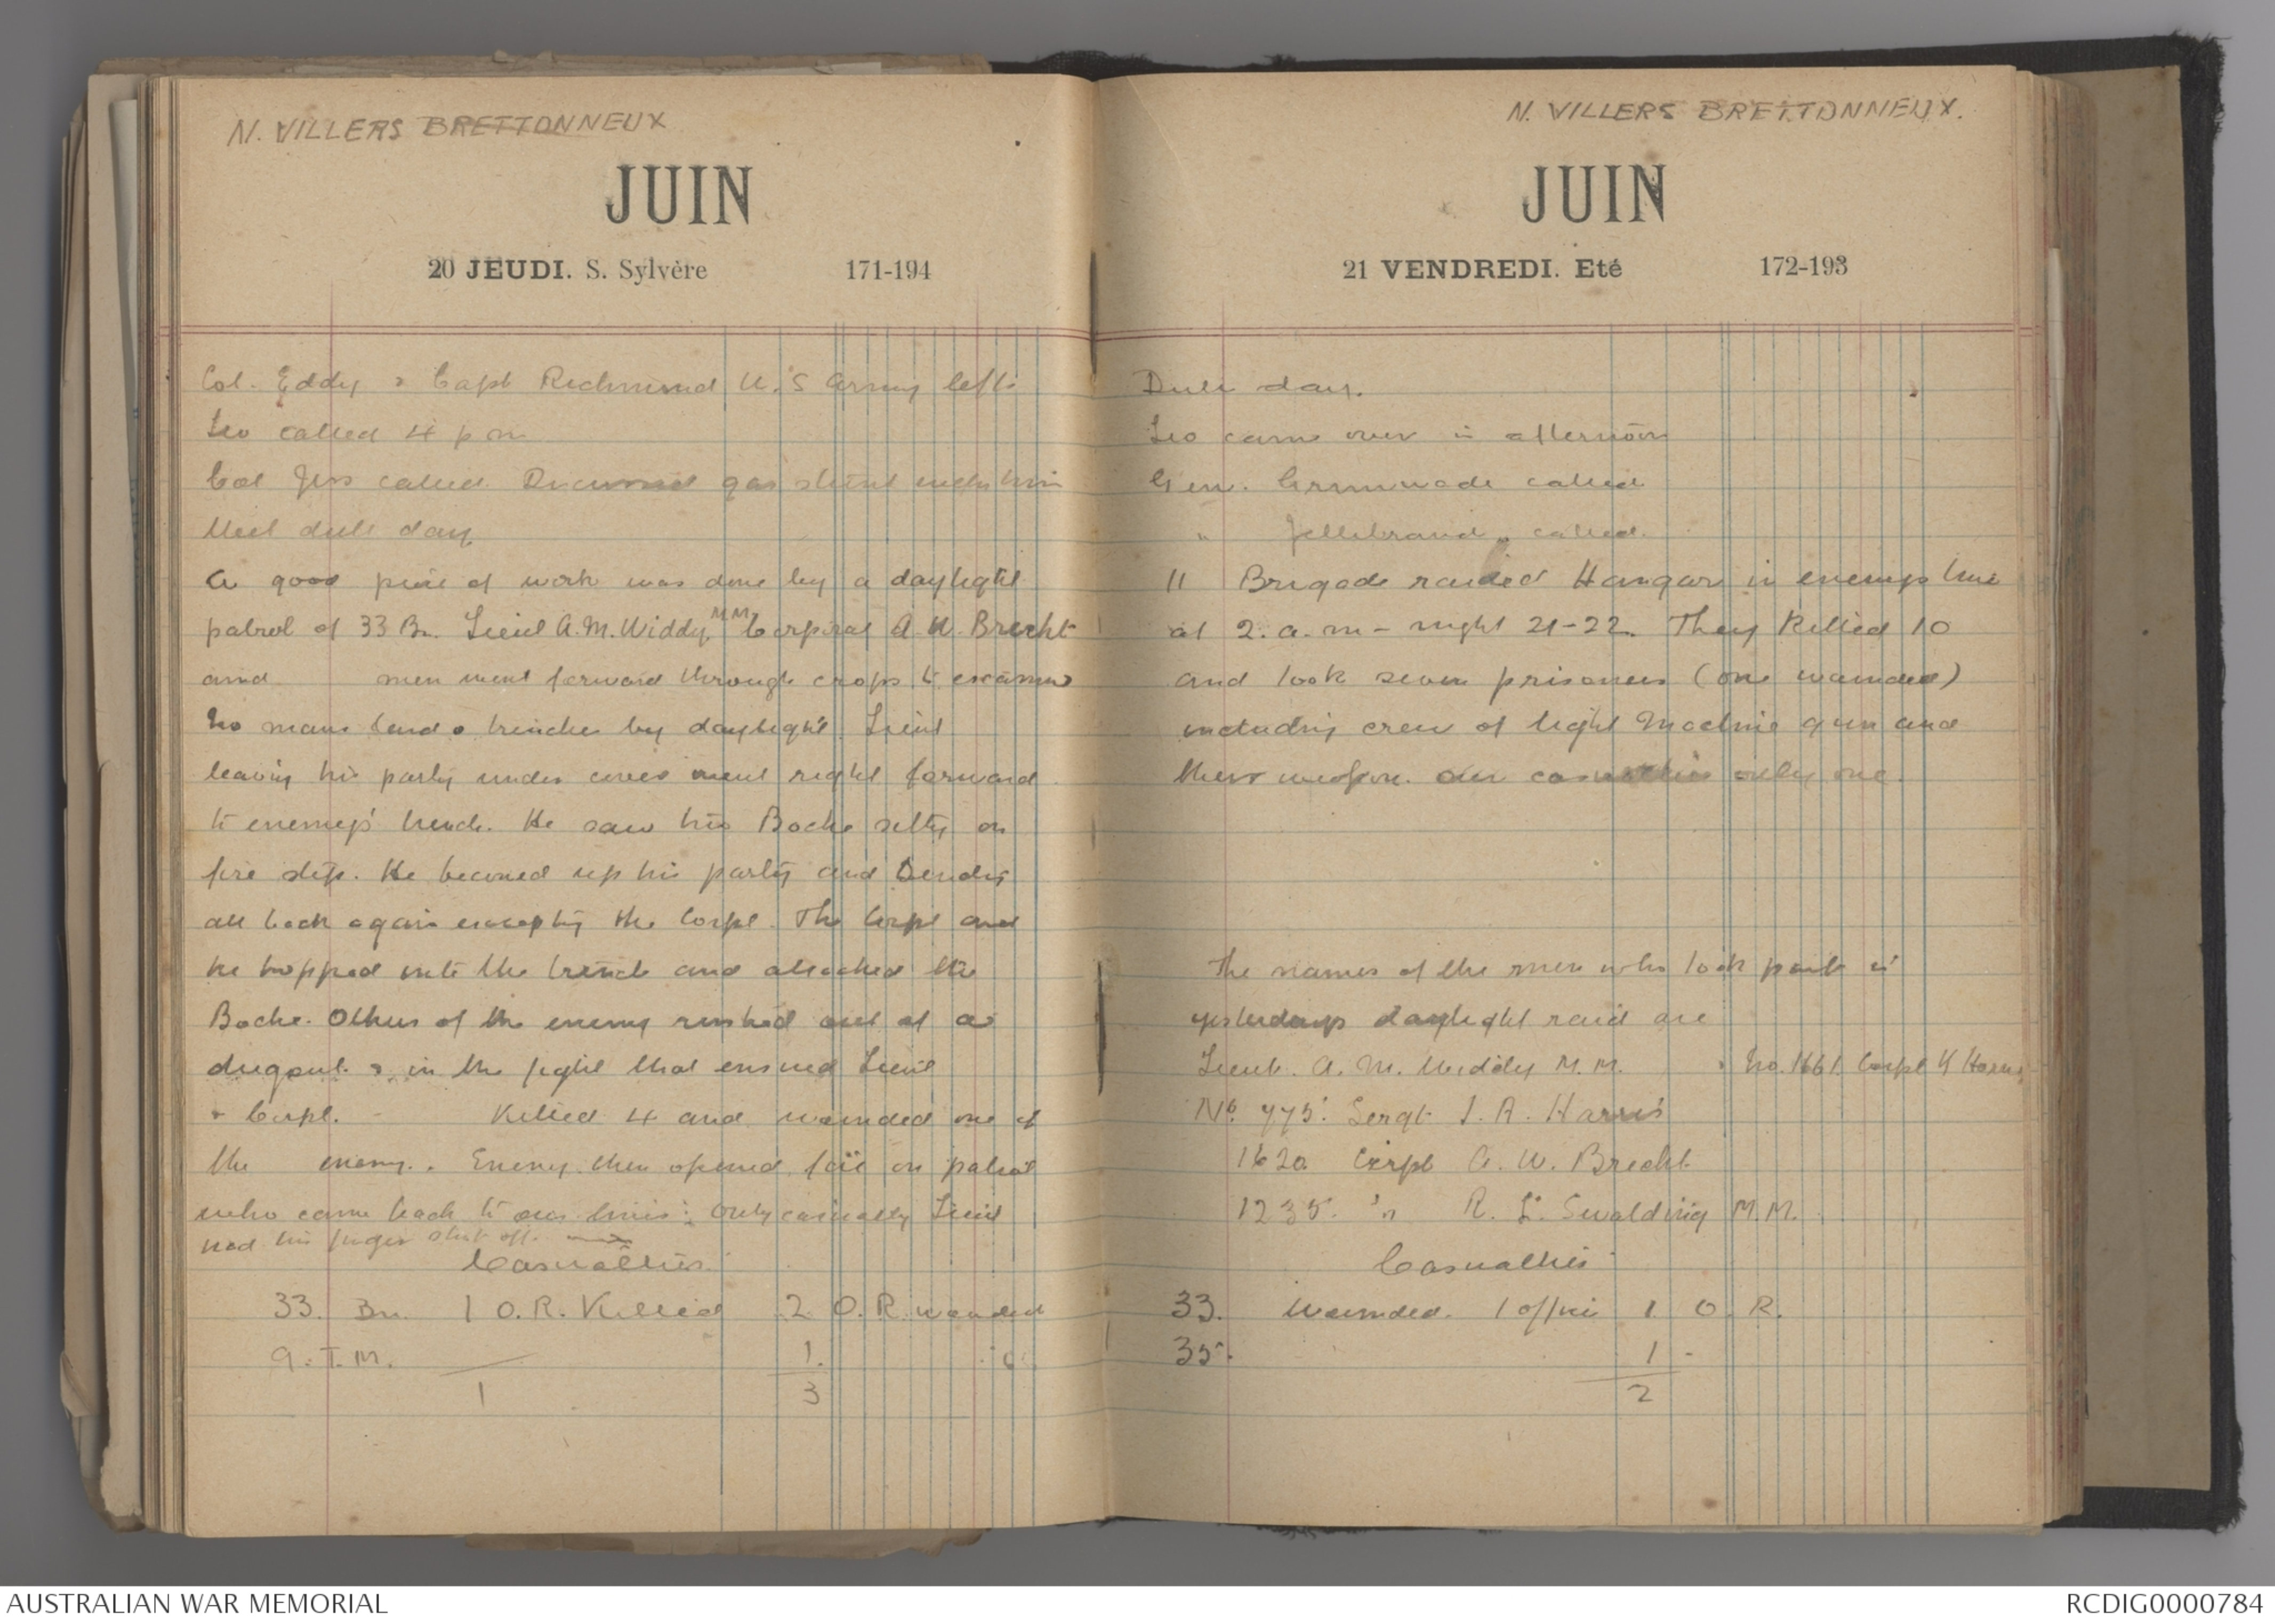 N. VILLERS BRETTONNEUX
JUIN
20 JEUDI. S. Sylvère 171-194
Col. Eddy & Capt Richmond U.S Army left.
Leo called 4 pm
Col Jess called. Discussed gas stunt with him
Wet dull day.
A good piece of work was done by a daylight
patrol of 33 Bn. Lieut A.M. Widdy, M M Corporal A. W. Brecht
and men went forward through crops to examine
No mans land & trenches by daylight. Lieut
leaving his party under cover went right forward
to enemys' trench. He saw two Boche sitting on
fire step. He beconed up his party and sending
all back again excepting the Corpl. The Corpl and
he hopped into the trench and attacked the
Boche. Others of the enemy rushed out of a
dugout & in the fight that ensued Lieut
& Corpl. Killed 4 and wounded one of
the enemy. Enemy then opened fire on patrol
who came back to our lines: only casualty Lieut
had his finger shot off.
Casualties
33. Bn. 1 O.R. Killed 2 O.R. wounded
9. T.M. 1.
1 3
N. VILLERS BRETTONNEUX.
JUIN
21 VENDREDI. Eté 172-193
Dull day.
Leo came over in afternoon
Gen. Grimwade called
" Gellibrand called.
11 Brigade raided Hangar in enemys line
at 2. a.m - night 21-22. They killed 10
and took seven prisoners (one wounded)
including crew of light Machine gun and
their weapon. Our casualties only one.
The names of the men who took part in
yesterdays daylight raid are
Lieut. A. M. Widdy M.M. & No. 1661 Corpl
No. 775. Sergt J. A. Harris
1620 Corpl A. W. Brecht
1235. " R. L. Swalding M.M.
Casualties
33. Wounded. 1 officer 1 O. R.
35. 1 -
2
AUSTRALIAN WAR MEMORIAL
RCDIG0000784